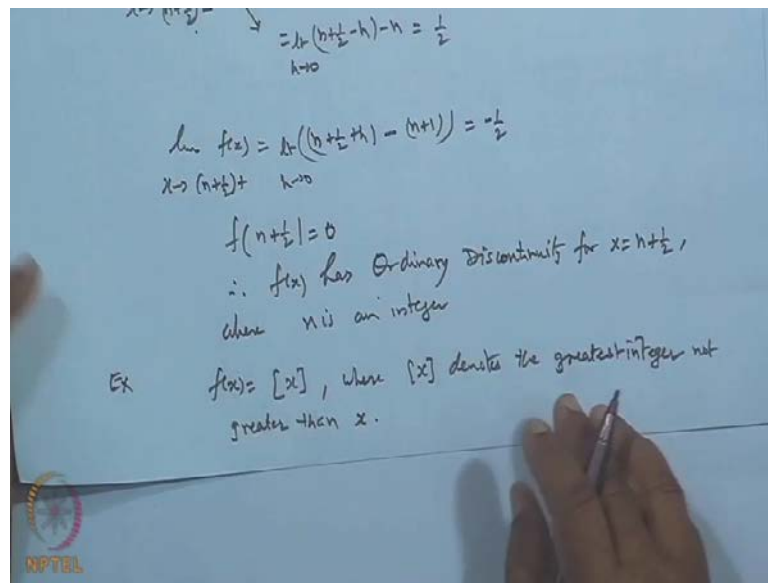 x→(n+½)-
= lt (n+½-h)-n = ½
h→0
lim f(x) = lt ((n+½+h) - (n+1)) = -½
x→(n+½)+ h→0
f(n+½)=0
∴ f(x) has Ordinary Discontinuity for x=n+½,
where n is an integer
Ex f(x)= [x], where [x] denotes the greatest integer not
greater than x.
NPTEL